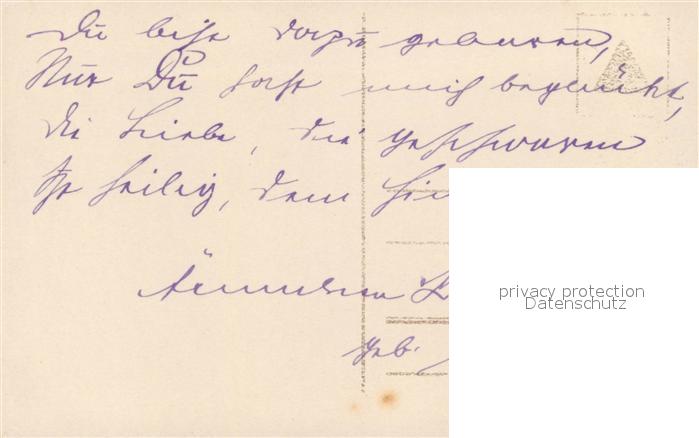 Du bist dazu geboren,
Nur Du hast mich beglückt,
die Liebe, die geschworen
Ist heilig, dem
geb.
privacy protection
Datenschutz